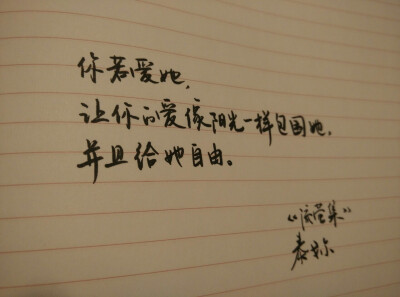 你若爱她，
让你的爱像阳光一样包围她，
并且给她自由。
《流萤集》
泰戈尔